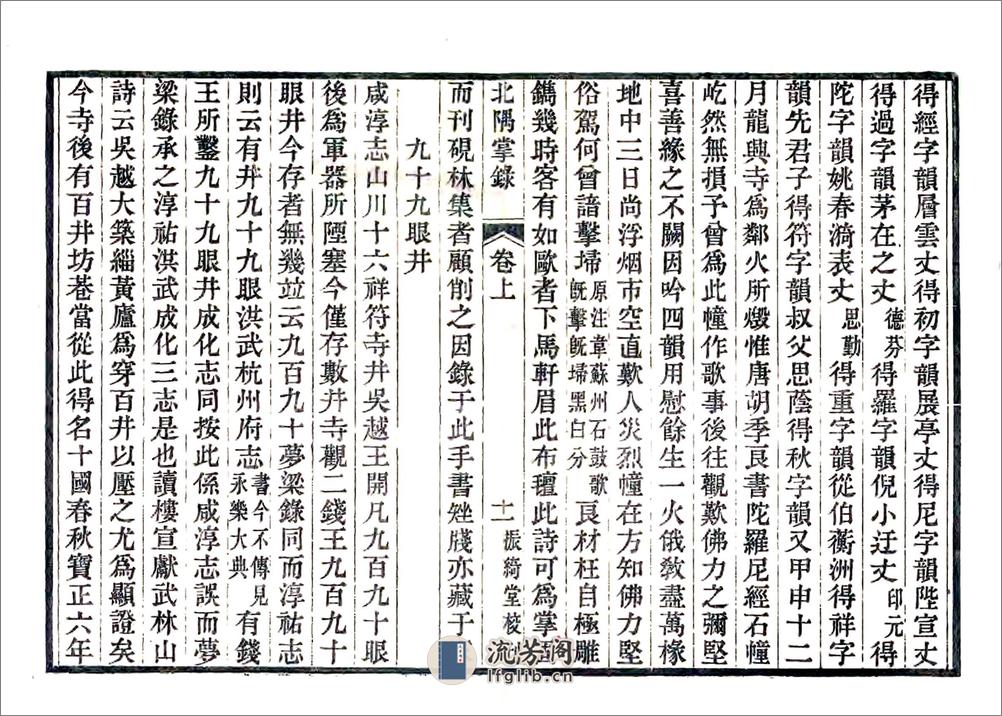 得經字韻層雲丈得初字韻展亭丈得尼字韻陛宣丈
得過字韻茅在之丈德芬得羅字韻倪小迂丈印元得
陀字韻姚春漪表丈思勤得重字韻從伯蘅洲得祥字
韻先君子得符字韻叔父思蔭得秋字韻又甲申十二
月龍興寺爲鄰火所燬惟唐胡季良書陀羅尼經石幢
屹然無損予曾爲此幢作歌事後往觀歎佛力之彌堅
喜善緣之不闕因吟四韻用慰餘生一火俄敎盡萬椽
地中三日尚浮烟市空直歎人災烈幢在方知佛力堅
俗駕何曾諳擊埽原注韋蘇州石鼓歌旣擊旣埽黑白分良材枉自極雕
鐫幾時客有如歐者下馬軒眉此布氊此詩可爲掌
北隅掌錄 卷上 十一 振綺堂
而刊硯林集者顧削之因錄于此手書矬牋亦藏于
九十九眼井
咸淳志山川十六祥符寺井吳越王開凡九百九十眼
後爲軍器所陻塞今僅存數井寺觀二錢王九百九十
眼井今存者無幾竝云九百九十夢梁錄同而淳祐志
則云有井九十九眼洪武杭州府志書今不傳見永樂大典有錢
王所鑿九十九眼井成化志同按此係咸淳志誤而夢
梁錄承之淳祐洪武成化三志是也讀樓宣獻武林山
詩云吳越大築緇黃廬爲穿百井以壓之尤爲顯證矣
今寺後有百井坊巷當從此得名十國春秋寶正六年
流芳閣
lfglib.cn